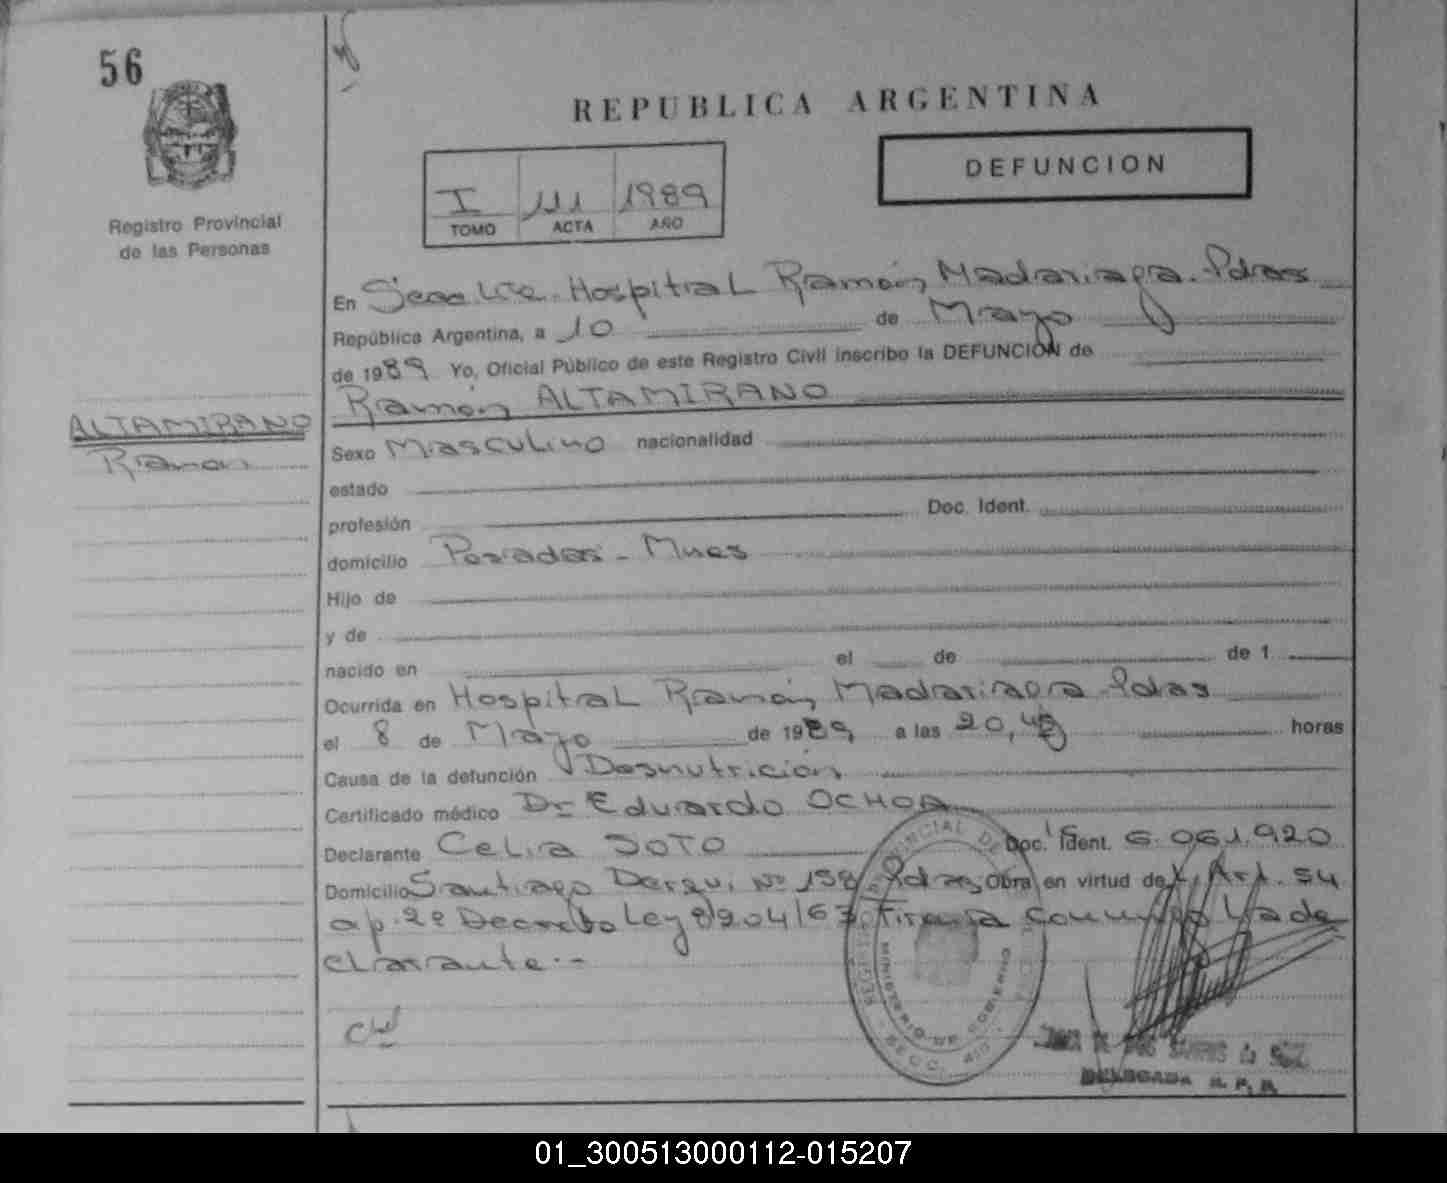 56
REPUBLICA ARGENTINA
DEFUNCION
I 111 1989
TOMO ACTA AÑO
Registro Provincial
de las Personas
En Hospital Ramón Madariaga - Pdas
República Argentina, a 10 de Mayo
de 1989 Yo, Oficial Público de este Registro Civil inscribo la DEFUNCION de
Ramón ALTAMIRANO
ALTAMIRANO
Ramon
Sexo Masculino nacionalidad
estado
profesión Doc. Ident.
domicilio Posadas - Mnes
Hijo de
y de
nacido en el de de 1
Ocurrida en Hospital Ramón Madariaga - Pdas
el 8 de Mayo de 1989 a las 20, horas
Causa de la defunción Desnutrición
Certificado médico Dr Eduardo OCHOA
Declarante Celia SOTO Doc. Ident. 6.061.920
Domicilio Santiago Derqui Nº 158 Pdas Obra en virtud del Art. 54
ap. 2º Decreto Ley 8204/63 Firma conmigo la de
clarante.-
REGISTRO PROVINCIAL DE
MINISTERIO DE GOBIERNO
DELEGADA R. P. P.
01_300513000112-015207